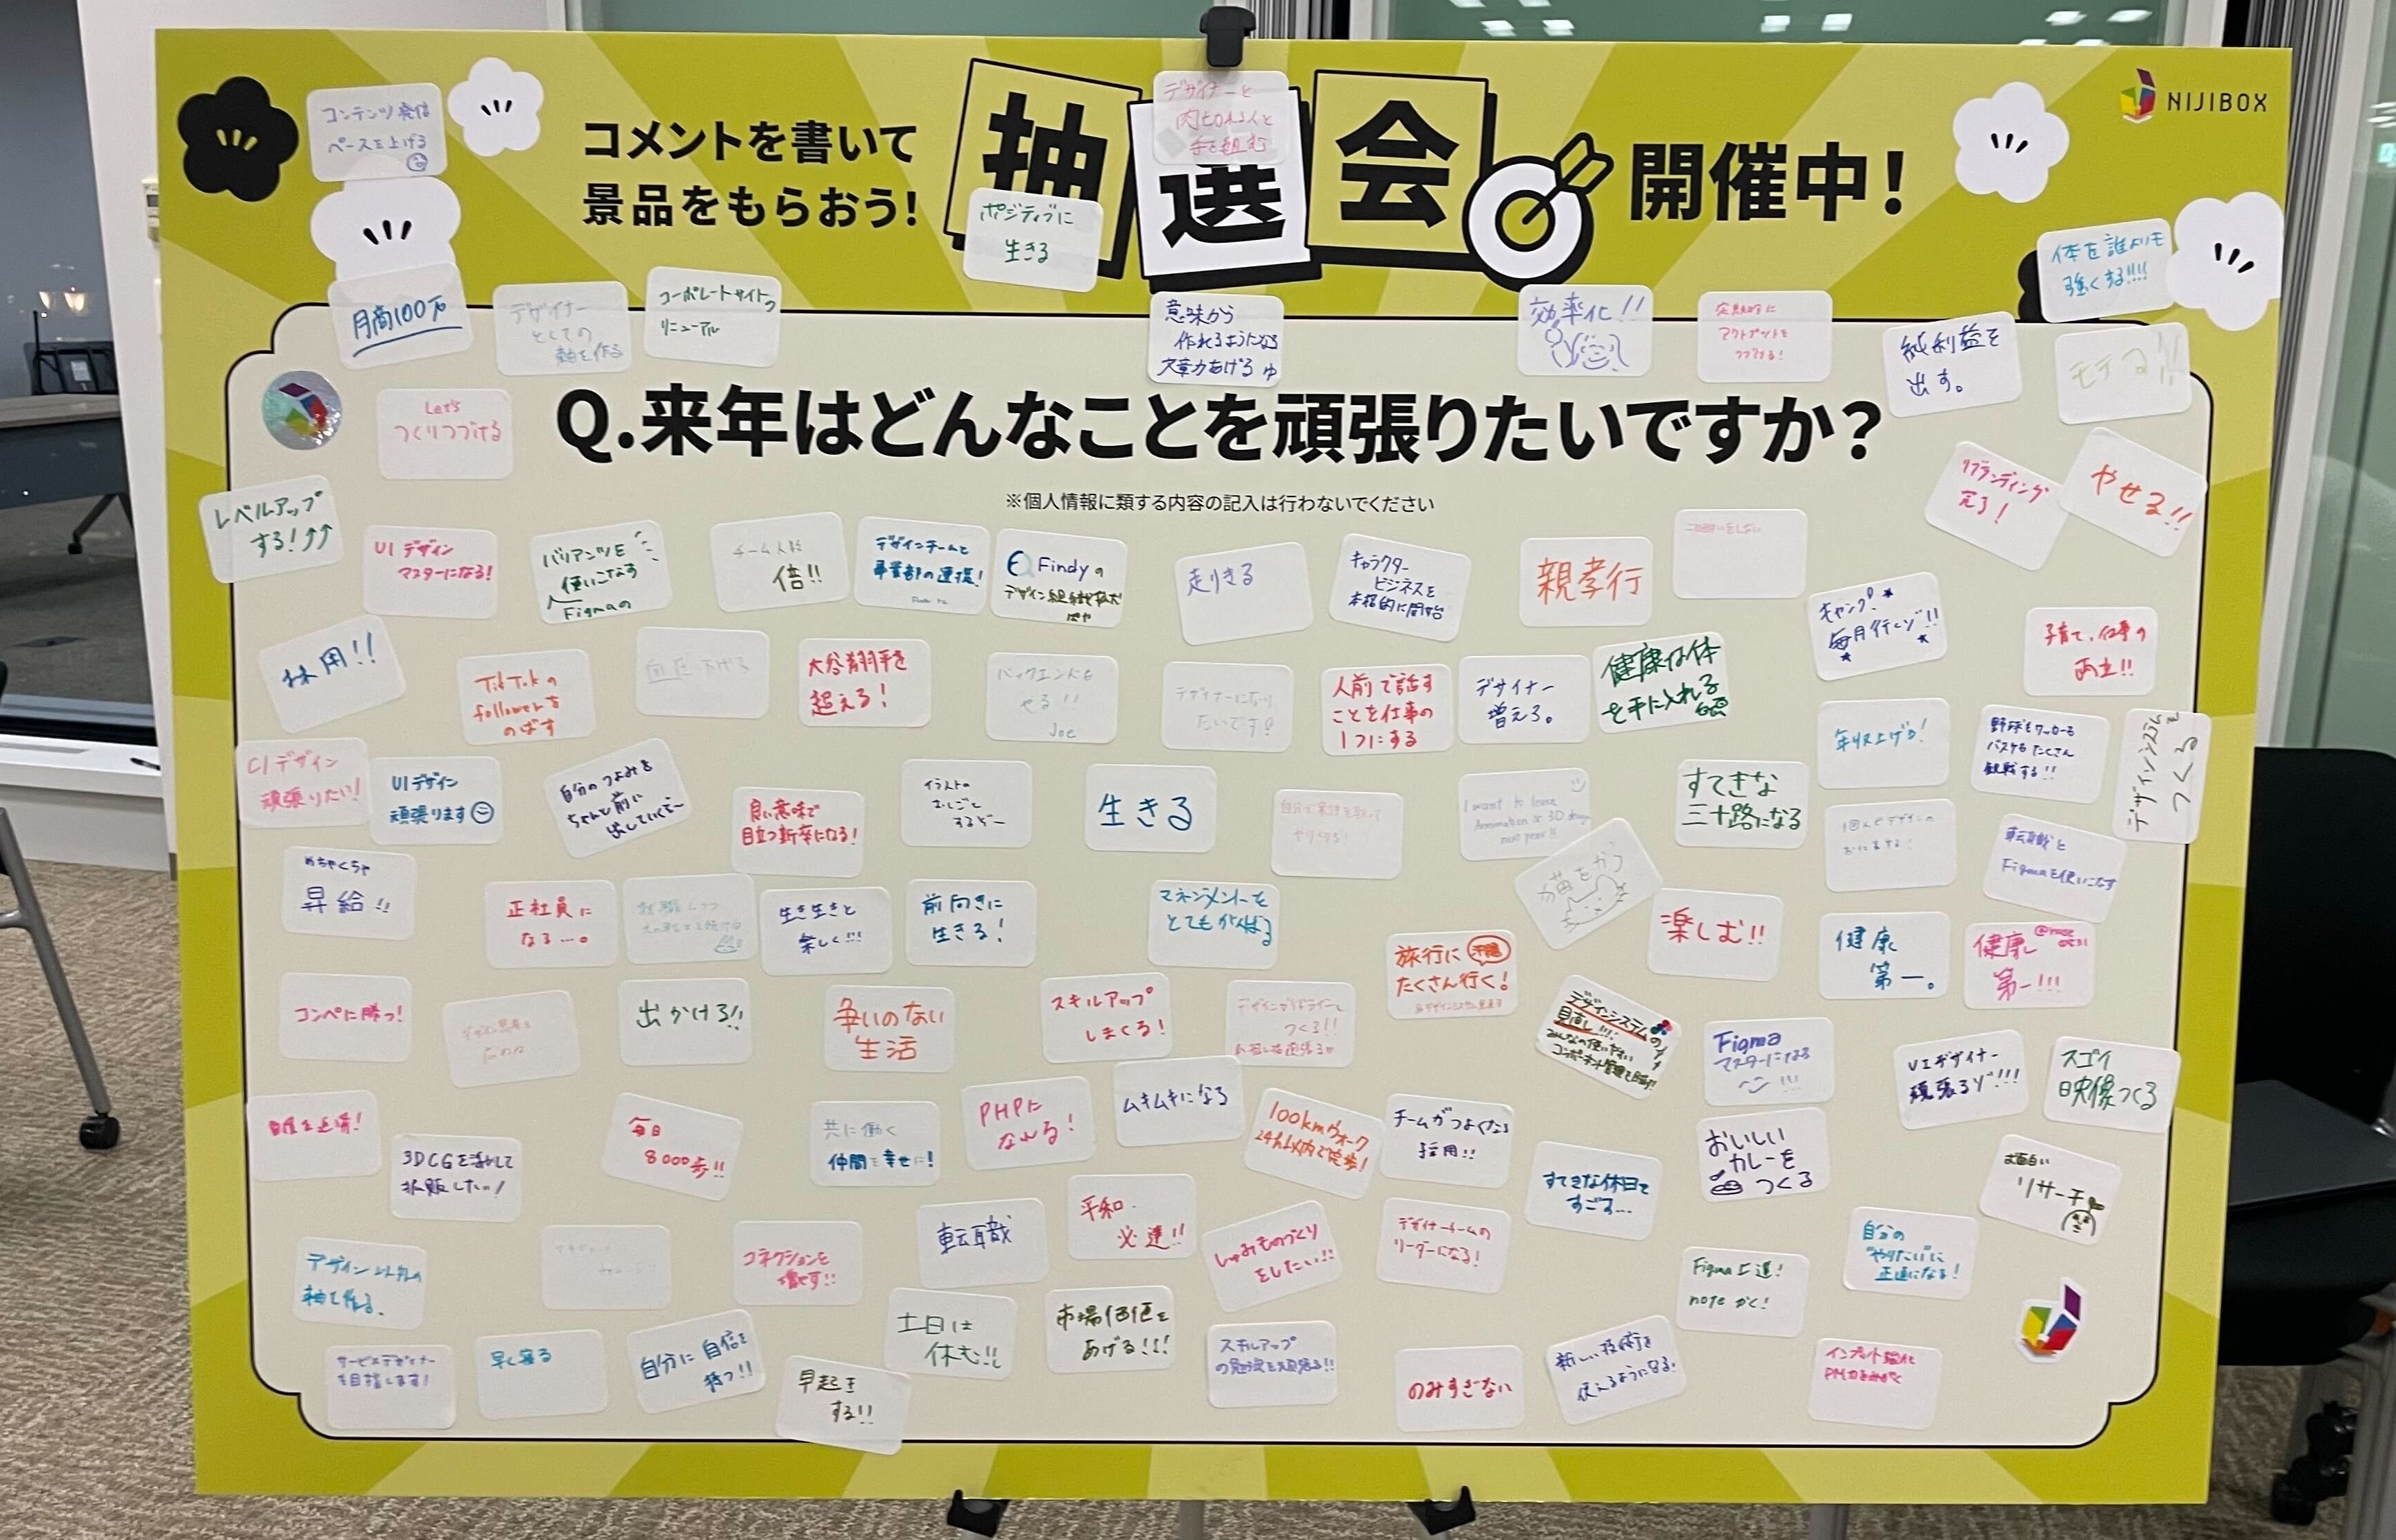 コンテンツ発信
ペースを上げる
コメントを書いて
景品をもらおう!
抽選会
開催中!
NIJIBOX
デザイナーと
手を組む
ポジティブに
生きる
体を誰よりも
強くする!!!!
月商100万
デザイナー
としての
軸を作る
コーポレートサイトの
リニューアル
意味から
作れるようになる
文章力あげる
効率化!!
定期的に
アウトプットを
つづける!
純利益を
出す。
モテる!!
Let's
つくりつづける
Q.来年はどんなことを頑張りたいですか?
※個人情報に類する内容の記入は行わないでください
リブランディング
やせる!!
レベルアップ
する!↑↑
UIデザイン
マスターになる!
バリアンツを
使いこなす
Figmaの
チーム人数
倍!!
デザインチームと
事業部の連携!
Findyの
デザイン組織拡大
走りきる
キャラクター
ビジネスを
本格的に開始
親孝行
キャンプ!
毎月行くゾ!!
子育て、仕事の
両立!!
採用!!
TikTokの
followerを
のばす
血圧下げる
大谷翔平を
超える!
バックエンドを
やる!!
Joe
デザイナーになり
たいです!
人前で話す
ことを仕事の
1つにする
デザイナー
増えろ。
健康な体
を手に入れる
年収上げる!
野球もサッカーも
バスケもたくさん
観戦する!!
デザインシステムを
つくる
CIデザイン
頑張りたい!
UIデザイン
頑張ります
自分のつよみを
ちゃんと前に
出していくぞ〜
良い意味で
目立つ新卒になる!
イラストの
おしごと
するぞー
生きる
I want to learn
Animation & 3D design
next year!!
すてきな
三十路になる
転職と
Figmaを使いこなす
めちゃくちゃ
昇給!!
正社員に
なる…。
生き生きと
楽しく!!!
前向きに
生きる!
マネジメントを
とてもがんばる
猫をかう
楽しむ!!
健康
第一。
健康
第一!!!
旅行に
たくさん行く!
コンペに勝つ!
出かける!!
争いのない
生活
スキルアップ
しまくる!
デザインガイドライン
つくる!!
デザインシステムの
見直し!!!
みんなの使いやすい
コンポーネント管理を目指す!!
Figma
マスターになる
!!!
UIデザイナー
頑張るゾ!!!
スゴイ
映像つくる
3DCGを活かして
毎日
8000歩!!
共に働く
仲間を幸せに!
PHPに
なれる!
ムキムキになる
100kmウォーク
24h以内で完歩!
チームがつよくなる
採用!!
すてきな休日を
すごす…
おいしい
カレーを
つくる
リサーチ
デザイン以外の
軸を作る、
コネクションを
増やす!!
転職
平和
必達!!
しゅみものづくり
をしたい!!
デザイナーチームの
リーダーになる!
Figma上達!
noteかく!
自分の
"やりたい"に
正直になる!
サービスデザイナー
を目指します!
早く寝る
自分に自信を
持つ!!
早起き
する!!
土日は
休む!!
市場価値を
あげる!!!
スキルアップ
の勉強を頑張る!!
のみすぎない
新しい技術を
使えるようになる。
インプット強化
PM力をみがく